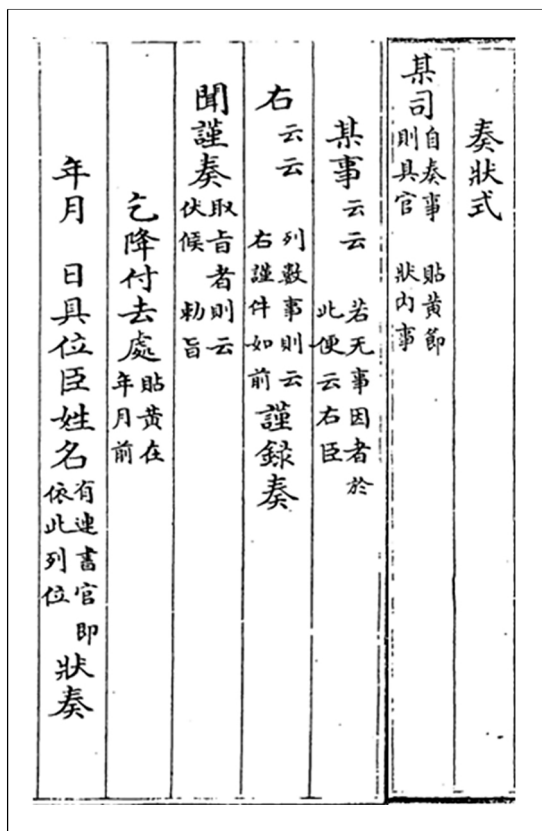 奏狀式
某司自奏事則具官 貼黃節狀內事
某事云云 若无事因者於此便云右臣
右云云 列數事則云右謹件如前謹録奏
聞謹奏取旨者則云伏候 勅旨
乞降付去處貼黃在年月前
年月 日具位臣姓名有連書官即依此列位狀奏